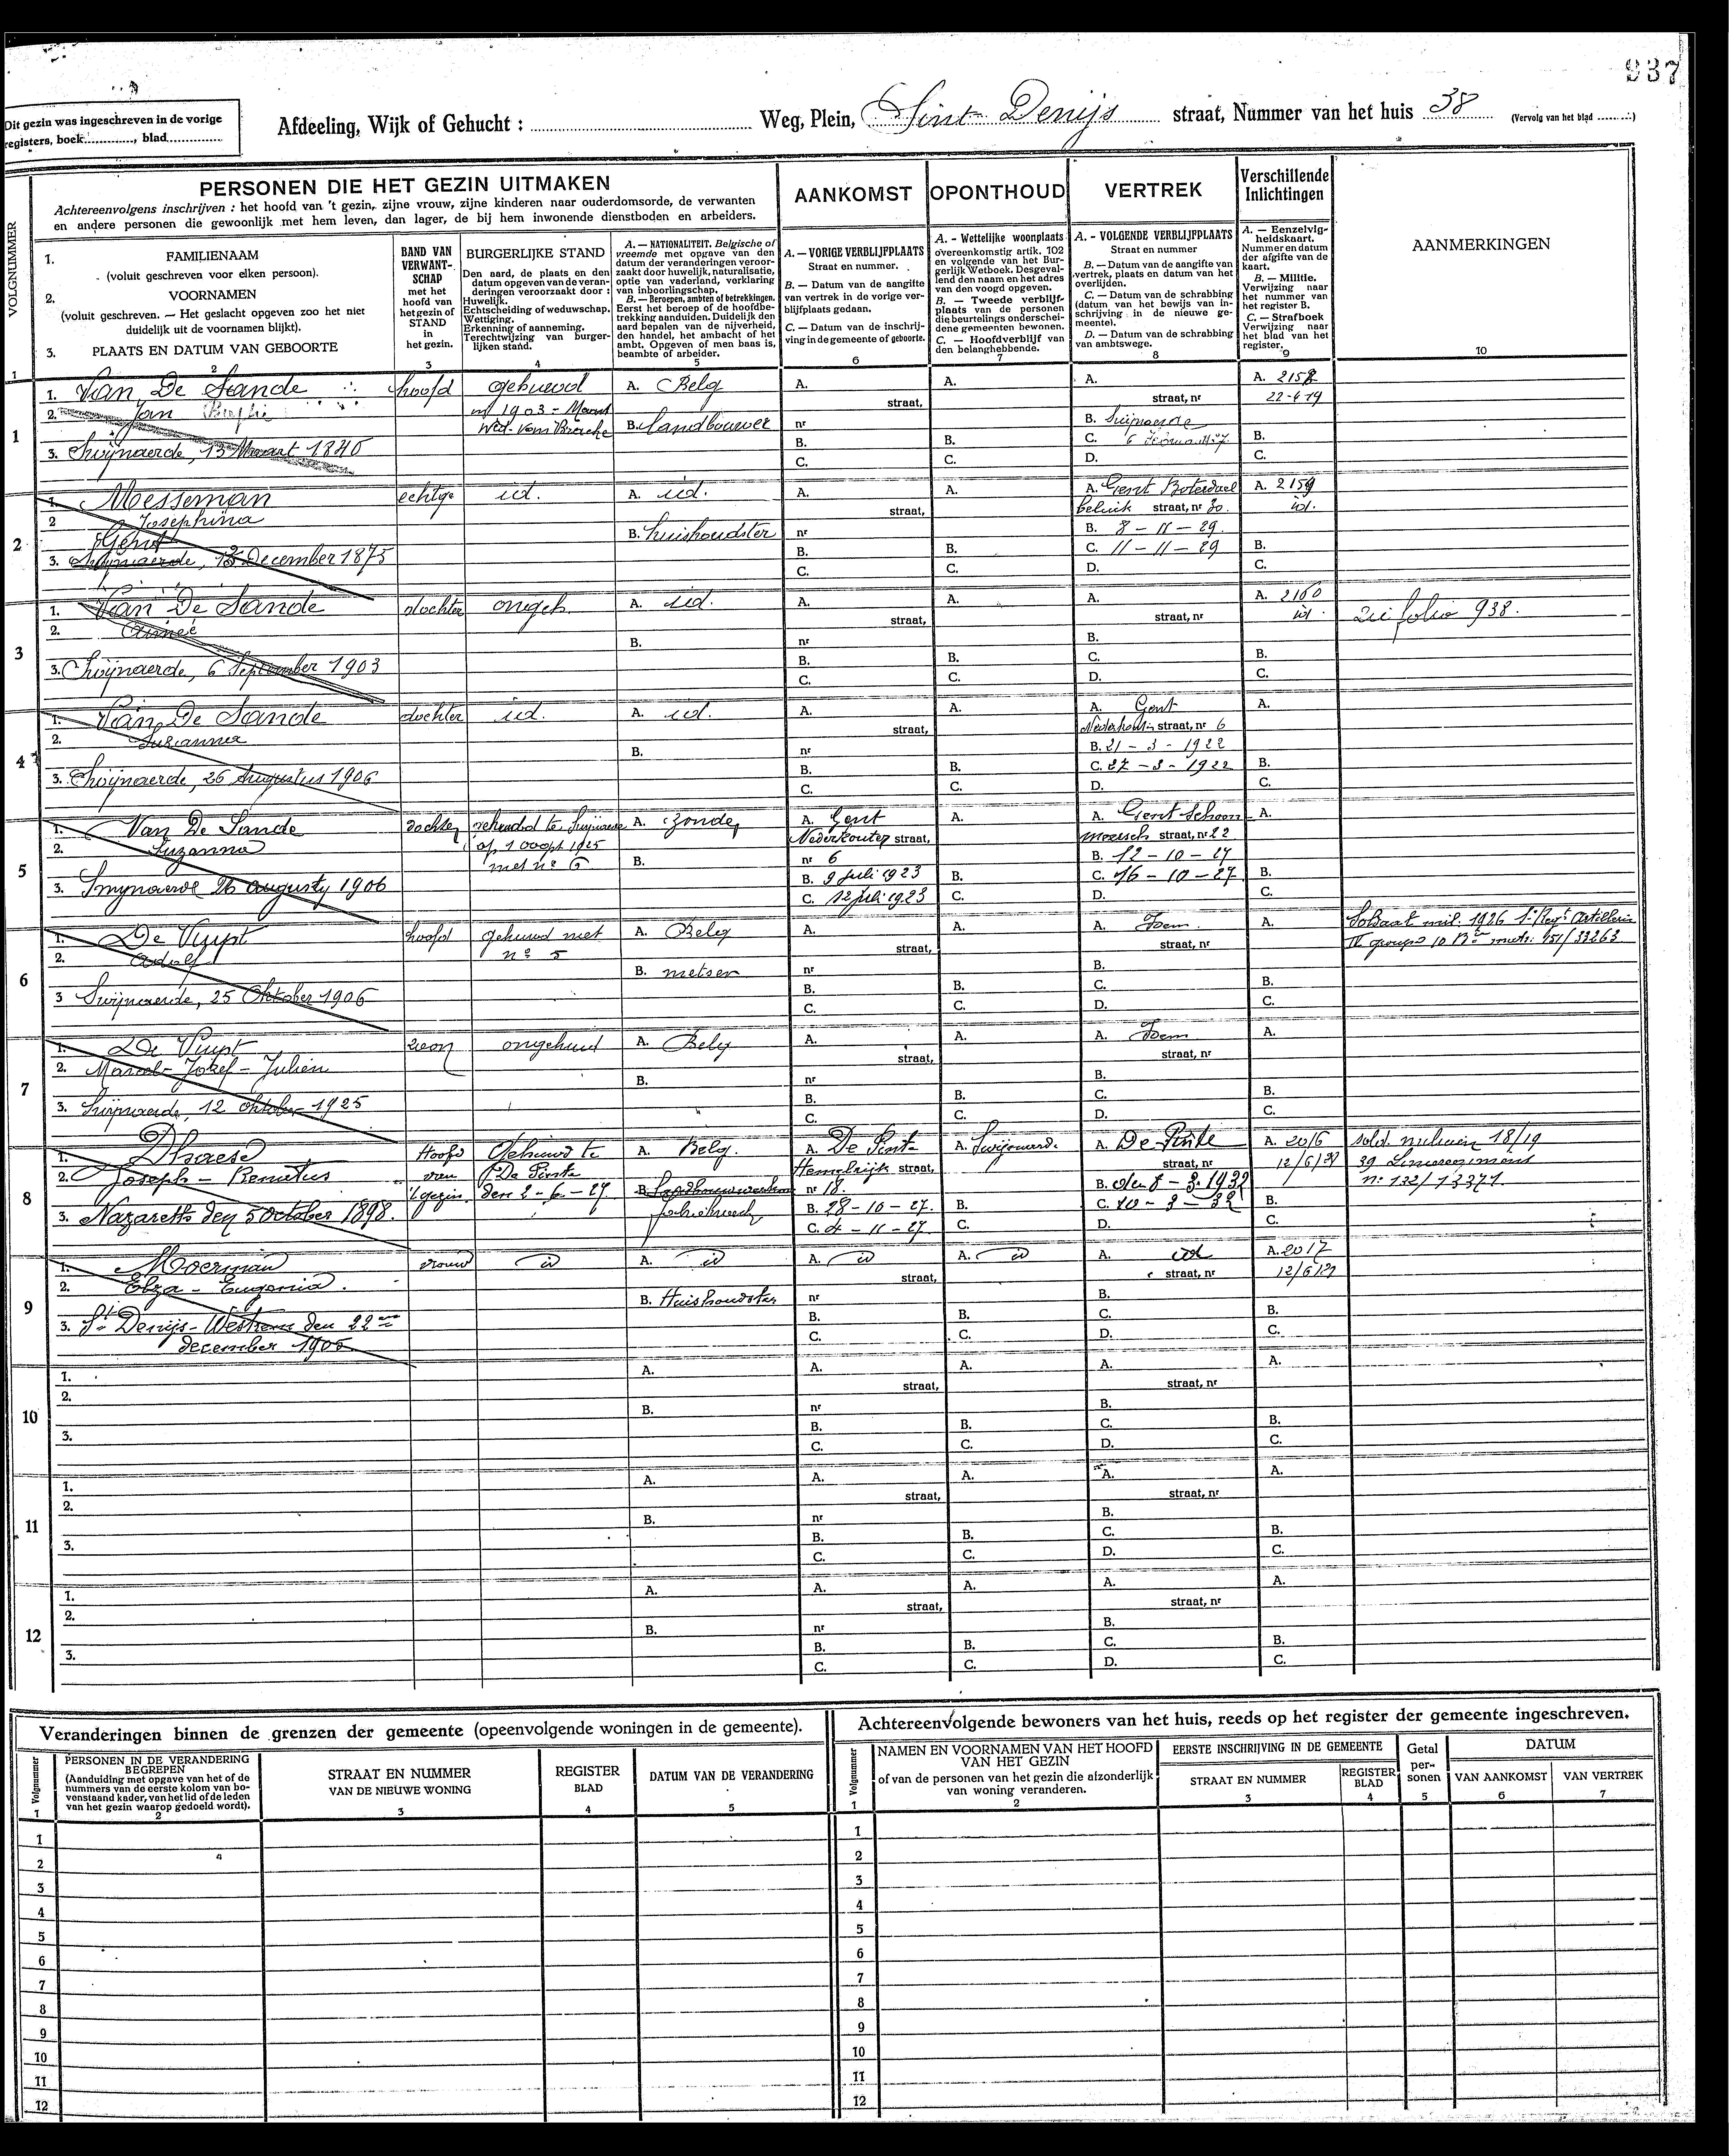 937
Dit gezin was ingeschreven in de vorige
registers, boek............, blad...............
Afdeeling, Wijk of Gehucht : ............ Weg, Plein, Sint Denijs straat, Nummer van het huis 38 (Vervolg van het blad .........)
PERSONEN DIE HET GEZIN UITMAKEN
Achtereenvolgens inschrijven : het hoofd van 't gezin, zijne vrouw, zijne kinderen naar ouderdomsorde, de verwanten
en andere personen die gewoonlijk met hem leven, dan lager, de bij hem inwonende dienstboden en arbeiders.
AANKOMST
OPONTHOUD
VERTREK
Verschillende
Inlichtingen
AANMERKINGEN
VOLGNUMMER
1. FAMILIENAAM
(voluit geschreven voor elken persoon).
2. VOORNAMEN
(voluit geschreven. — Het geslacht opgeven zoo het niet
duidelijk uit de voornamen blijkt).
3. PLAATS EN DATUM VAN GEBOORTE
BAND VAN
VERWANT-
SCHAP
met het
hoofd van
het gezin of
STAND
in
het gezin.
BURGERLIJKE STAND
Den aard, de plaats en den
datum opgeven van de veran-
deringen veroorzaakt door :
Huwelijk.
Echtscheiding of weduwschap.
Wettiging.
Erkenning of aanneming.
Terechtwijzing van burger-
lijken stand.
A. — NATIONALITEIT. Belgische of
vreemde met opgave van den
datum der veranderingen veroor-
zaakt door huwelijk, naturalisatie,
optie van vaderland, verklaring
van inboorlingschap.
B. — Beroepen, ambten of betrekkingen.
Eerst het beroep of de hoofdbe-
trekking aanduiden. Duidelijk den
aard bepalen van de nijverheid,
den handel, het ambacht of het
ambt. Opgeven of men baas is,
beambte of arbeider.
A. — VORIGE VERBLIJFPLAATS
Straat en nummer.
B. — Datum van de aangifte
van vertrek in de vorige ver-
blijfplaats gedaan.
C. — Datum van de inschrij-
ving in de gemeente of geboorte.
A. - Wettelijke woonplaats
overeenkomstig artik. 102
en volgende van het Bur-
gerlijk Wetboek. Desgeval-
lend den naam en het adres
van den voogd opgeven.
B. — Tweede verblijf-
plaats van de personen
die beurtelings onderschei-
dene gemeenten bewonen.
C. — Hoofdverblijf van
den belanghebbende.
A. - VOLGENDE VERBLIJFPLAATS
Straat en nummer
B. — Datum van de aangifte van
vertrek, plaats en datum van het
overlijden.
C. — Datum van de schrabbing
(datum van het bewijs van in-
schrijving in de nieuwe ge-
meente).
D. — Datum van de schrabbing
van ambtswege.
A. — Eenzelvig-
heidskaart.
Nummer en datum
der afgifte van de
kaart.
B. — Militie.
Verwijzing naar
het nummer van
het register B.
C. — Strafboek
Verwijzing naar
het blad van het
register.
1 2 3 4 5 6 7 8 9 10
1
1. Van De Sande hoofd gehuwd A. Belg A. A. A. A. 2158
2. Jan 1903 - straat, straat, nr 22-4-19
B. landbouwer nr B. Swijnaerde
3. Swijnaerde, 13 Maart 1840 B. B. C. B.
C. C. D. C.
2
1. Messeman echtge id. A. id. A. A. A. Gent A. 2159
2 Josephina straat, beluik straat, nr 30. id.
Gent B. huishoudster nr B. 8 - 11 - 29.
3. Swijnaerde, December 1875 B. B. C. 11 - 11 - 29 B.
C. C. D. C.
3
1. Van De Sande dochter ongeh. A. id. A. A. A. A. 2160
2. Aimée straat, straat, nr id. folio 938.
B. nr B.
3. Swijnaerde, 6 September 1903 B. B. C. B.
C. C. D. C.
4
1. Van De Sande dochter id. A. id. A. A. A. Gent A.
2. Suzanna straat, straat, nr 6
B. nr B. 21 - 3 - 1922
3. Swijnaerde, 26 Augustus 1906 B. B. C. 27 - 3 - 1922 B.
C. C. D. C.
5
1. Van De Sande dochter gehuwd te Swijnaerde A. A. Gent A. A. Gent Schoon- A.
2. Suzanna op 1925 Nederkouter straat, meersch straat, nr 22
met nº 6 B. nr 6 B. 12 - 10 - 27
3. 26 1906 B. 9 Juli 1923 B. C. 16 - 10 - 27 B.
C. 12 juli 1923 C. D. C.
6
1. De Vuyst hoofd gehuwd met A. Belg A. A. A. Idem. A. Soldaat mil. 1926
2. Adolf nº 5 straat, straat, nr
B. metser nr B.
3 Swijnaerde, 25 Oktober 1906 B. B. C. B.
C. C. D. C.
7
1. De Vuyst zoon ongehuwd A. Belg A. A. A. Idem A.
2. Marcel - Jozef - Julien straat, straat, nr
B. nr B.
3. Swijnaerde, 12 oktober 1925 B. B. C. B.
C. C. D. C.
8
1. Dhaese Hoofd Gehuwd te A. Belg. A. De Pinte A. A. De Pinte A. 2016 18/19
2. Joseph - Renatus van De Pinte Hemelrijk straat, straat, nr
't gezin den 2 - 6 - 27 B. nr 18. B. den 8 - 3 - 1932
3. Nazareth den 5 october 1898. B. 28 - 10 - 27. B. C. 10 - 3 - 32 B.
C. 4 - 11 - 27. C. D. C.
9
1. Moerman vrouw id A. id A. id A. id A. id A. 2017
2. Elza - Eugenia. straat, straat, nr
B. Huishoudster nr B.
3. St Denijs-Westrem den 22en B. B. C. B.
december 1905 C. C. D. C.
10
1. A. A. A. A. A.
2. straat, straat, nr
B. nr B.
3. B. B. C. B.
C. C. D. C.
11
1. A. A. A. A. A.
2. straat, straat, nr
B. nr B.
3. B. B. C. B.
C. C. D. C.
12
1. A. A. A. A. A.
2. straat, straat, nr
B. nr B.
3. B. B. C. B.
C. C. D. C.
Veranderingen binnen de grenzen der gemeente (opeenvolgende woningen in de gemeente).
Volgnummer
PERSONEN IN DE VERANDERING
BEGREPEN
(Aanduiding met opgave van het of de
nummers van de eerste kolom van bo-
venstaand kader, van het lid of de leden
van het gezin waarop gedoeld wordt).
STRAAT EN NUMMER
VAN DE NIEUWE WONING
REGISTER
BLAD
DATUM VAN DE VERANDERING
1 2 3 4 5
1
2
3
4
5
6
7
8
9
10
11
12
Achtereenvolgende bewoners van het huis, reeds op het register der gemeente ingeschreven.
Volgnummer
NAMEN EN VOORNAMEN VAN HET HOOFD
VAN HET GEZIN
of van de personen van het gezin die afzonderlijk
van woning veranderen.
EERSTE INSCHRIJVING IN DE GEMEENTE
STRAAT EN NUMMER
REGISTER
BLAD
Getal
per-
sonen
DATUM
VAN AANKOMST
VAN VERTREK
1 2 3 4 5 6 7
1
2
3
4
5
6
7
8
9
10
11
12